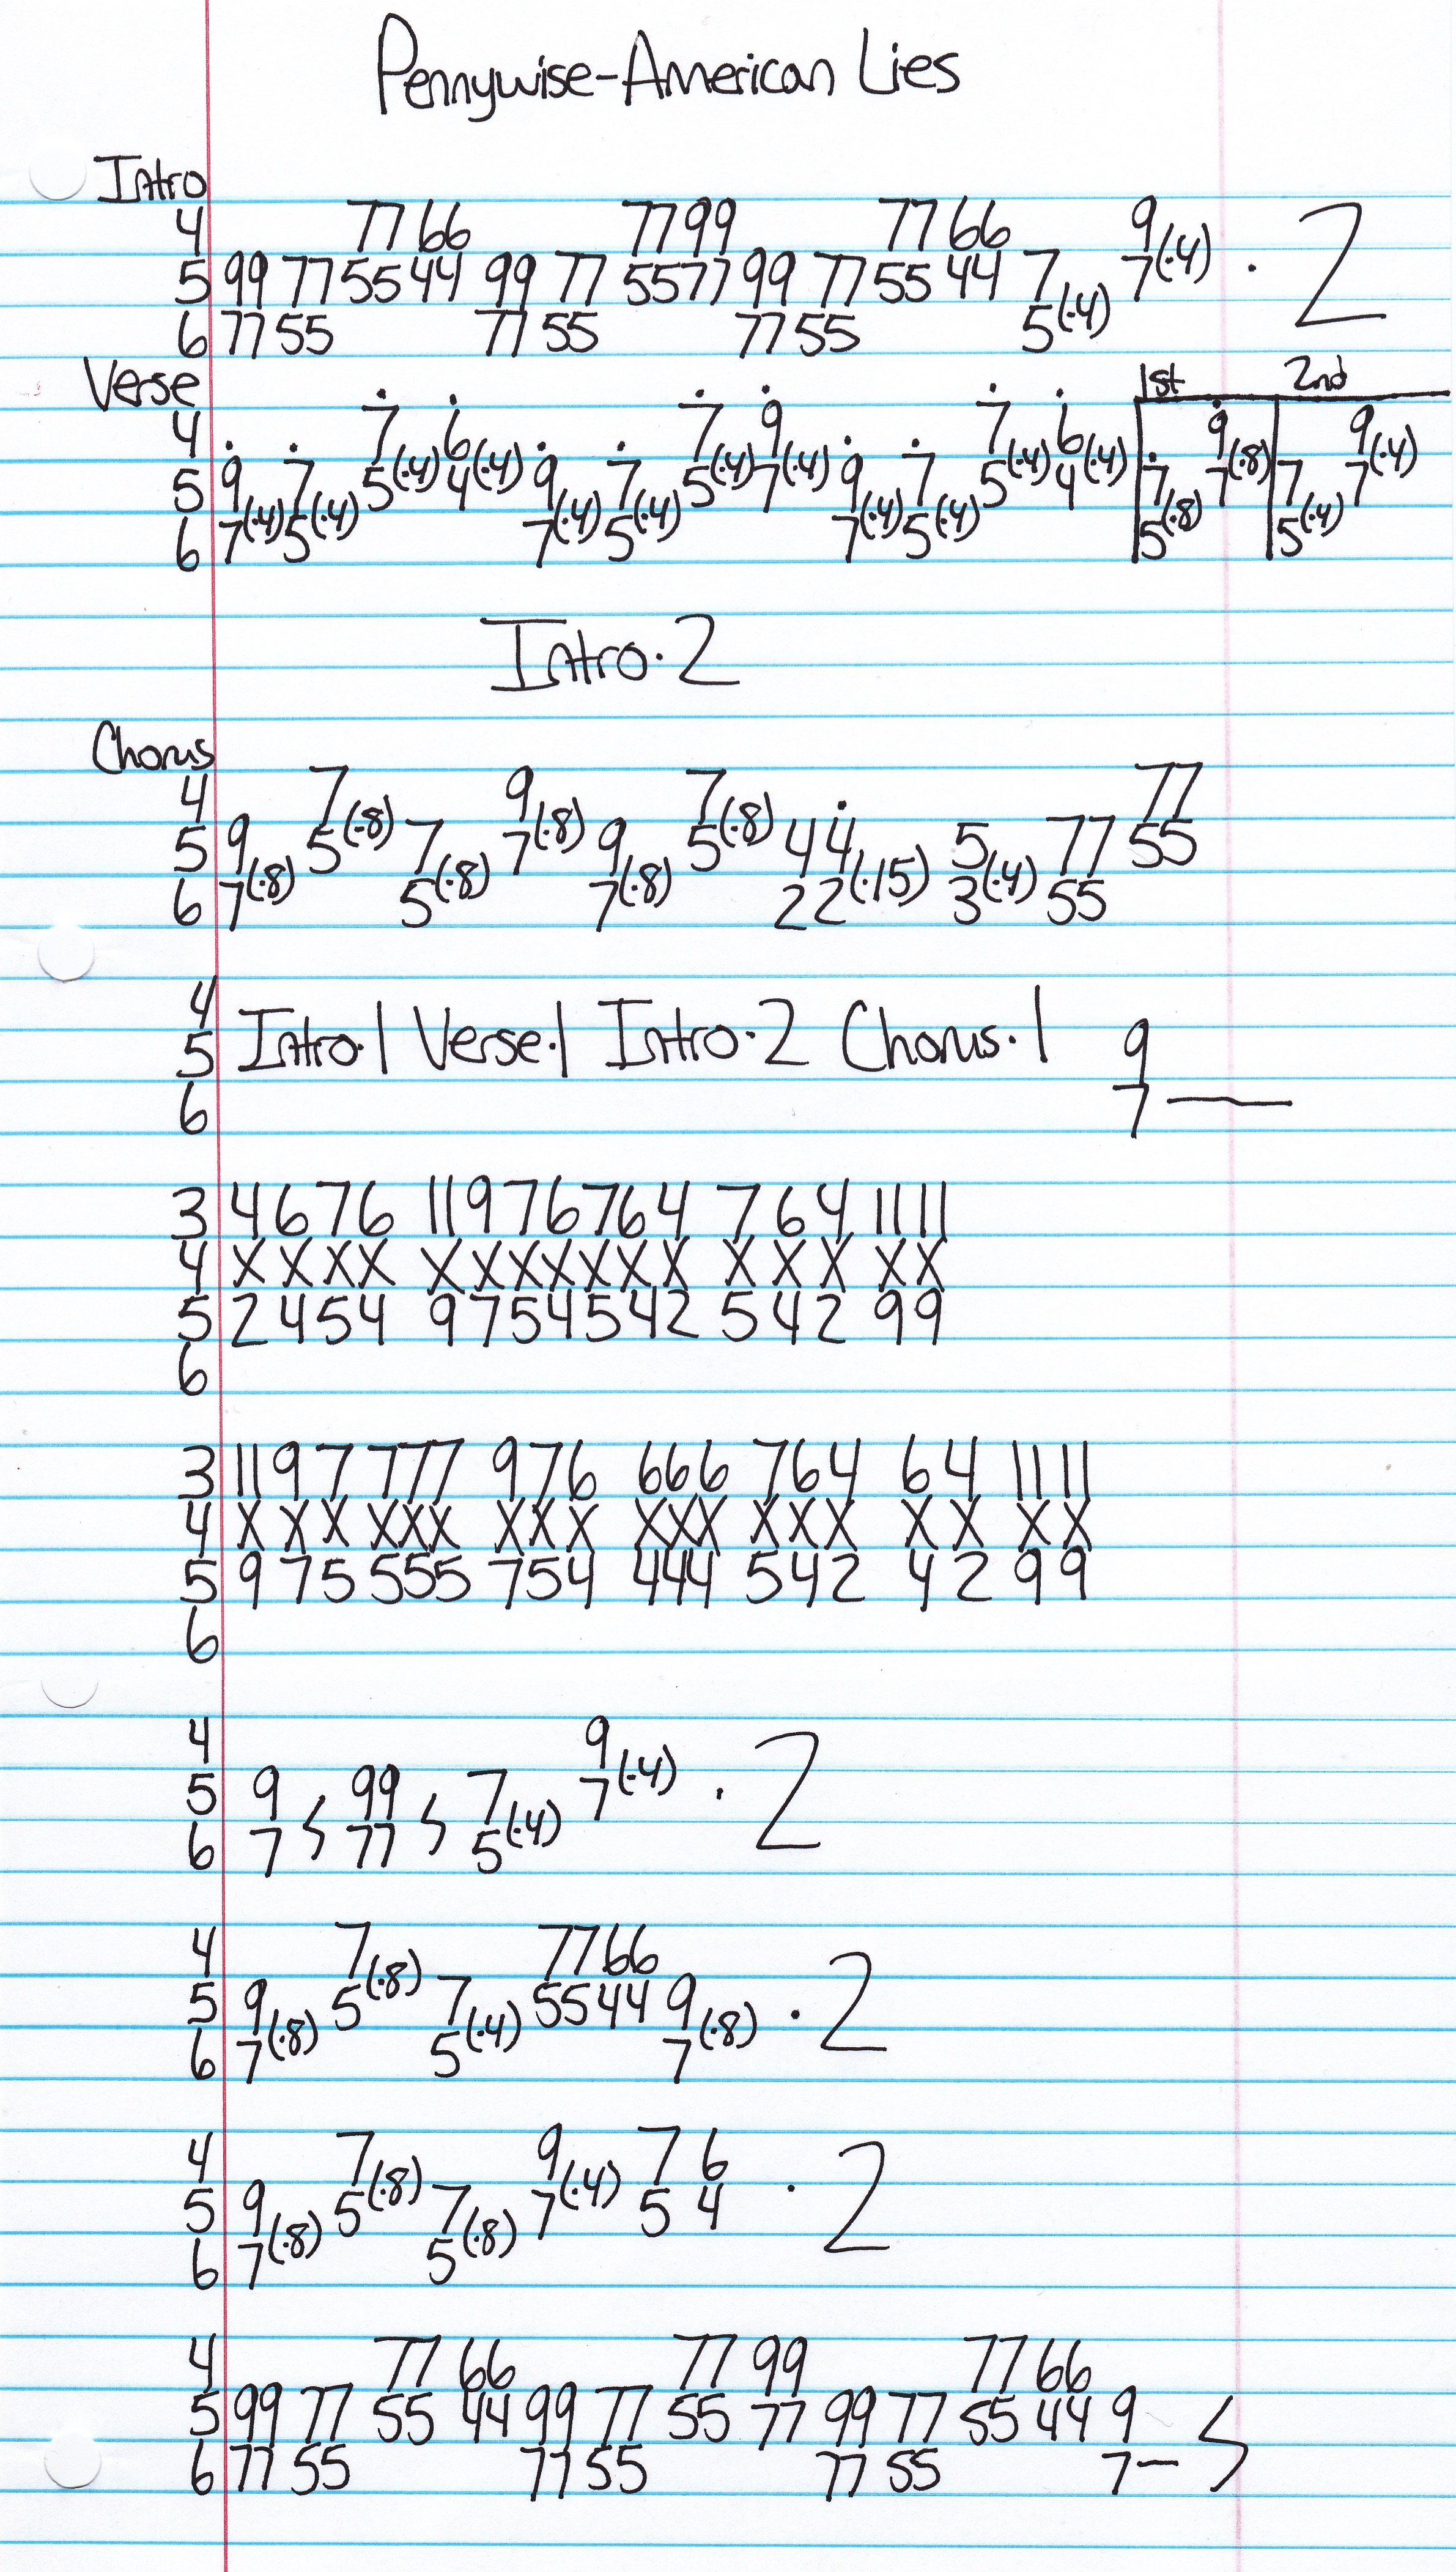 Pennywise-American Lies
Intro
4 77 66 77 99 77 66 9
5 99 77 55 44 99 77 55 77 99 77 55 44 7 7(·4) · 2
6 77 55 77 55 77 55 5(·4)
Verse 1st 2nd
4 7 6 7 9 7 6 9 9
5 9 7 5(·4) 4(·4) 9 7 5(·4) 7(·4) 9 7 5(·4) 4(·4) 7 7(·8) 7 7(·4)
6 7(·4) 5(·4) 7(·4) 5(·4) 7(·4) 5(·4) 5(·8) 5(·4)
Intro·2
Chorus
4 7 9 7 77
5 9 5(·8) 7 7(·8) 9 5(·8) 4 4 5 77 55
6 7(·8) 5(·8) 7(·8) 2 2(·15) 3(·4) 55
4
5 Intro·1 Verse·1 Intro·2 Chorus·1 9
6 7 —
3 4 6 7 6 11 9 7 6 7 6 4 7 6 4 11 11
4 X X X X X X X X X X X X X X X X
5 2 4 5 4 9 7 5 4 5 4 2 5 4 2 9 9
6
3 11 9 7 7 7 7 9 7 6 6 6 6 7 6 4 6 4 11 11
4 X X X X X X X X X X X X X X X X X X X
5 9 7 5 5 5 5 7 5 4 4 4 4 5 4 2 4 2 9 9
6
4 9
5 9 99 7 7(·4) · 2
6 7 77 5(·4)
4 7 77 66
5 9 5(·8) 7 55 44 9 · 2
6 7(·8) 5(·4) 7(·8)
4 7 9 7 6
5 9 5(·8) 7 7(·4) 5 4 · 2
6 7(·8) 5(·8)
4 77 66 77 99 77 66
5 99 77 55 44 99 77 55 77 99 77 55 44 9
6 77 55 77 55 77 55 7—